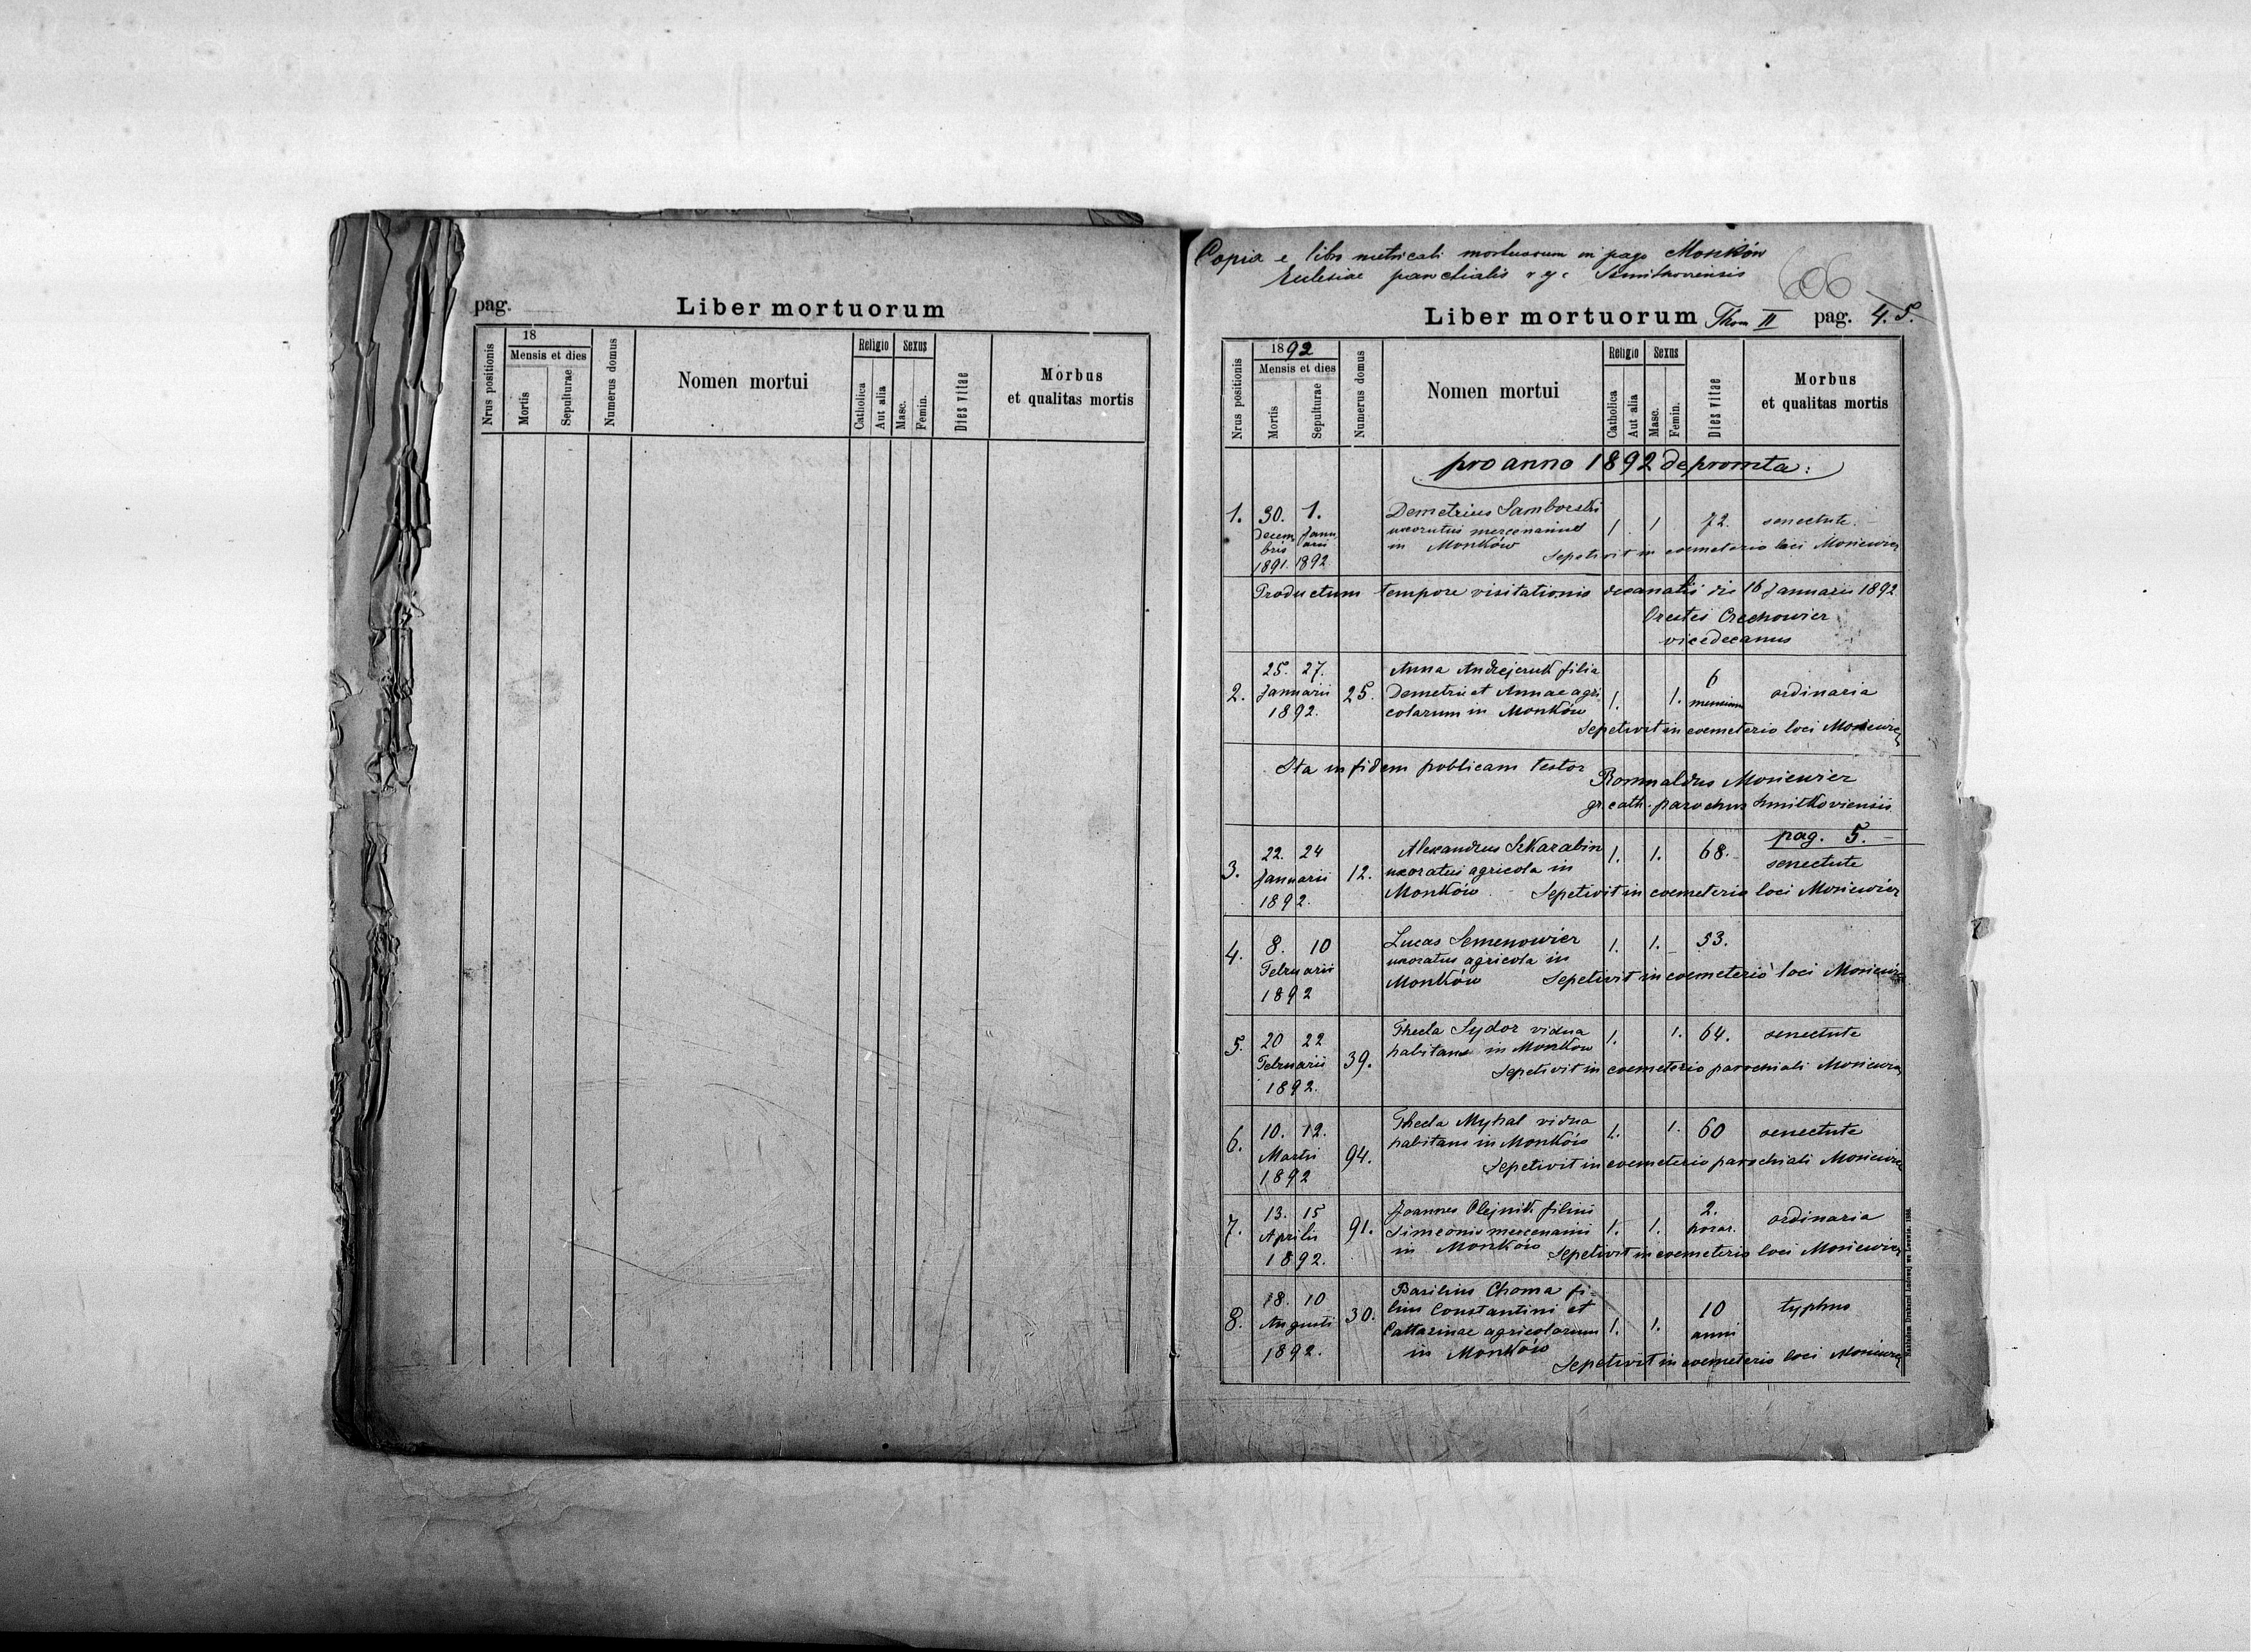 pag.
Liber mortuorum
Nrus positionis
18
Mensis et dies
Mortis
Sepulturae
Numerus domus
Nomen mortui
Religio
Catholica
Aut alia
Sexus
Masc.
Femin.
Dies vitae
Morbus
et qualitas mortis
Copia e libro metricali mortuorum in pago Monków
Eclesiae parochialis r. g. c.
606
Liber mortuorum Thom II pag. 4. 5.
Nrus positionis
1892
Mensis et dies
Mortis
Sepulturae
Numerus domus
Nomen mortui
Religio
Catholica
Aut alia
Sexus
Masc.
Femin.
Dies vitae
Morbus
et qualitas mortis
pro anno 1892 depromta:
1. 30. 1. Demetrius Samborski
Decem Janu uxoratus mercenarius 1 1 72. senectute.
bris arii in Monków Sepelivit in coemeterio loci Mosiewicz
1891. 1892
Productum tempore visitationis decanalis die 16 Januarii 1892
Orestes Orechowicz
vicedecanus
25. 27. Anna Andrejcruk filia 6
2. Januarii 25. Demetrii et Annae agri 1. 1. mensium ordinaria
1892. colarum in Monków
Sepelivit in coemeterio loci Mosiewicz
Ita in fidem publicam testor
Romualdus Mosiewicz
gr. cath. parochus Smitkoviensis
pag. 5.
22. 24 Alexandrus Szkarabin 1. 1. 68. senectute
3. Januarii 12. uxoratus agricola in
1892. Monków Sepelivit in coemeterio loci Mosiewicz
4. 8. 10 Lucas Semenowicz 1. 1. 53.
Februarii uxoratus agricola in
1892 Monków Sepelivit in coemeterio loci Mosiewicz
Thecla Sydor vidua 1. 1. 64. senectute
5. 20 22 habitans in Monków
Februarii 39. Sepelivit in coemeterio parochiali Mosiewicz
1892.
Thecla Myhal vidua 1. 1. 60 senectute
6. 10. 12. habitans in Monków
Martii 94. Sepelivit in coemeterio parochiali Mosiewicz
1892
13. 15 Joannes Olejnik filius 2.
7. Aprilis 91. Simeonis mercenarii 1. 1. horar. ordinaria
1892. in Monków Sepelivit in coemeterio loci Mosiewicz
18. 10 Basilius Choma fi-
8. Augusti 30. lius Constantini et 10 typhus
1892. Cattarinae agricolarum 1. 1. anni
in Monków Sepelivit in coemeterio loci Mosiewicz
Nakładem Drukarni Ludowej we Lwowie.